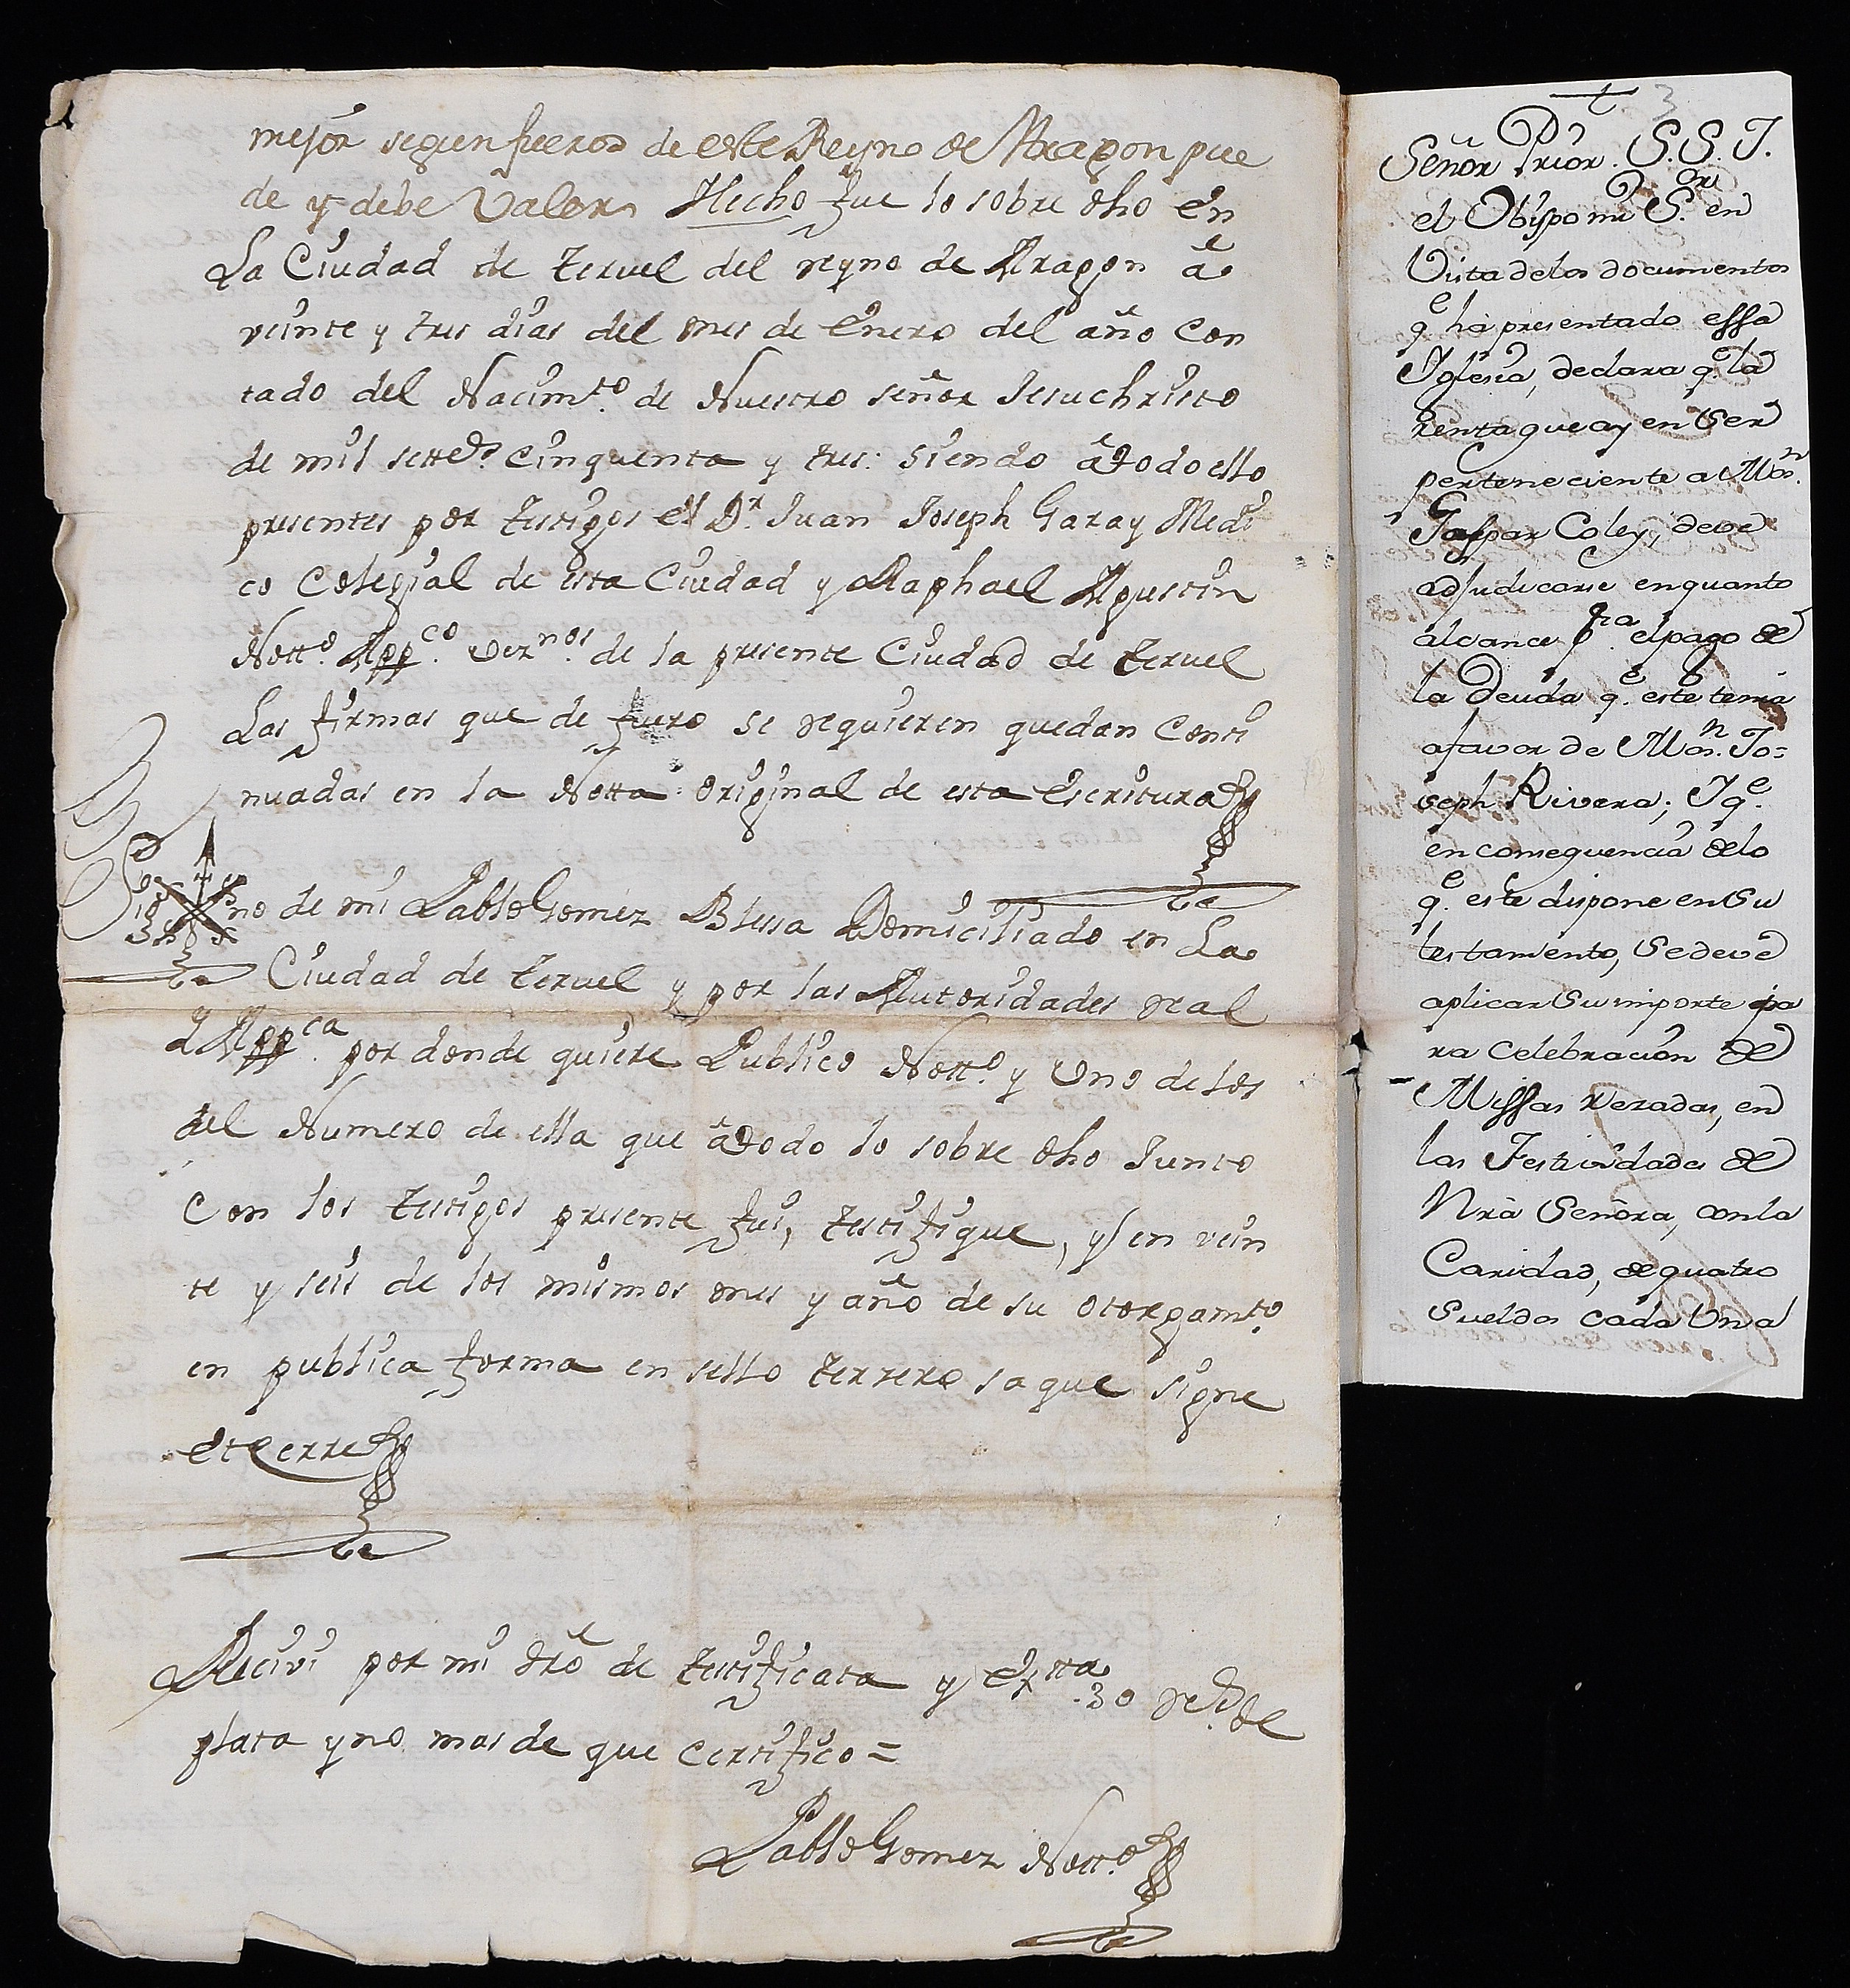 mejor segun fueros de este Reyno de Aragon pue
de y debe Valer Hecho fue lo sobre dho en
La Ciudad de Teruel del reyno de Aragon â
veinte y tres dias del mes de Enero del año con
tado del Nacimto. de Nuestro señor Jesuchristo
de mil setteds. cinquenta y tres: siendo â todo ello
presentes por testigos el Dr. Juan Joseph Garay Medi
co Colegial de esta Ciudad y Raphael Agustin
Notto. Appco. veznos. de la presente Ciudad de Teruel
Las firmas que de fuero se requieren quedan conti
nuadas en la Notta original de esta escritura
Sig no de mi Pablo Gomez Blessa Domiciliado en La
Ciudad de Teruel y por las Autoridades real
y Appca. por donde quiere Publico Notto. y Uno de los
del Numero de ella que â todo lo sobre dho Junto
Con los testigos presente fui, testifique, y en vein
te y seis de los mismos mes y año de su otorgamto.
en publica forma en sello terzero saque signe
et cerre
Recivi por mi dro de testificata y extta 30 rs. de
plata y no mas de que certifico =
Pablo Gomez Notto.
3
Señor Prior. S.S.I.
el Obispo mi Sor. en
Vista de los documentos
qe ha presentado essa
Iglesia, declara qe. la
renta que ay en Ser
perteneciente a Mosn.
Gaspar Coley, deve
adjudicarse en quanto
alcance pra. el pago de
la Deuda qe. este tenia
a favor de Mosn. Jo=
seph Rivera; I qe.
en consequencia de lo
qe. este dispone en su
testamento, se deve
aplicar su importe pa
ra celebracion de
Missas rezadas, en
las Festividades de
Nrã Señora, con la
Caridad, de quatro
Sueldos cada Una